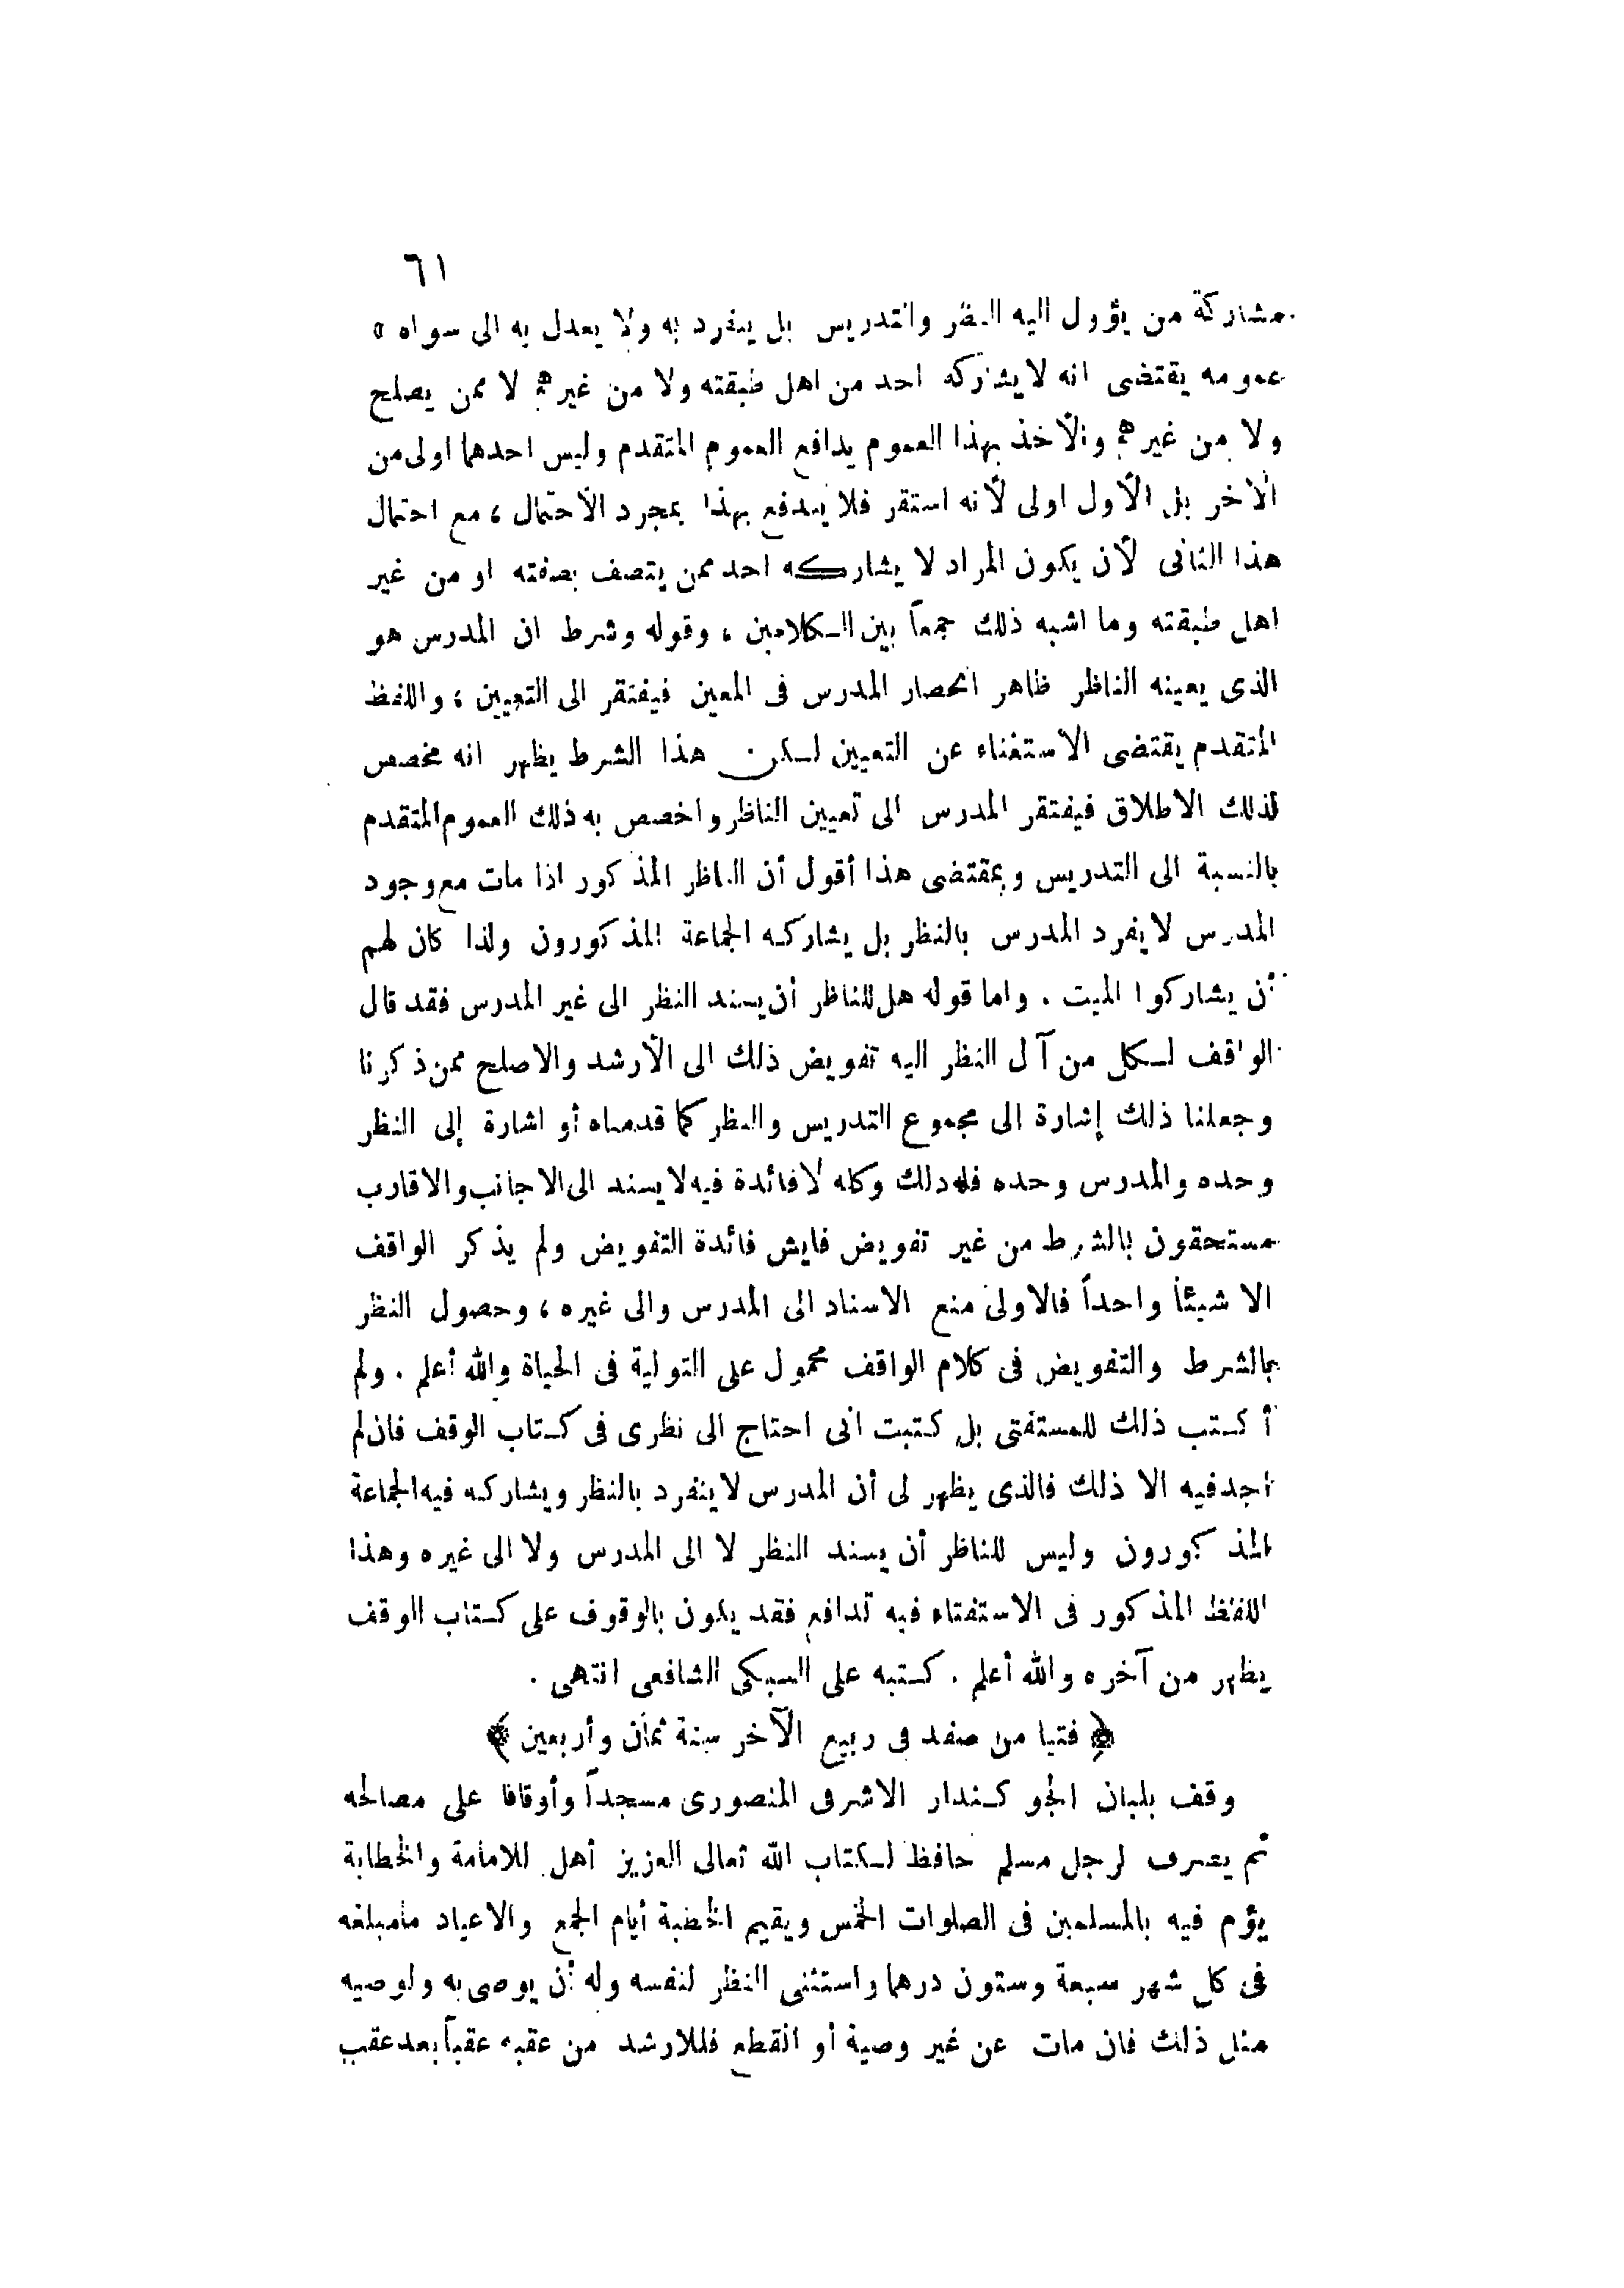 ٦١
مشاركة من يؤول اليه النظر والتدريس بل ينفرد به ولا يعدل به الى سواه ه
عمومه يقتضى انه لا يشاركه احد من اهل طبقته ولا من غيرهم لا ممن يصلح
ولا من غيرهم والأخذ بهذا العموم يدافع العموم المتقدم وليس احدهما اولى من
الآخر بل الأول اولى لأنه استقر فلا يندفع بهذا بمجرد الاحتمال ، مع احتمال
هذا الثانى لأن يكون المراد لا يشاركه احد ممن يتصف بصفته او من غير
اهل طبقته وما اشبه ذلك جمعاً بين الكلامين ، وقوله وشرط ان المدرس هو
الذى يعينه الناظر ظاهر انحصار المدرس فى المعين فيفتقر الى التعيين ، واللفظ
المتقدم يقتضى الاستغناء عن التعيين لكن هذا الشرط يظهر انه مخصص
لذلك الاطلاق فيفتقر المدرس الى تعيين الناظر واخصص به ذلك العموم المتقدم
بالنسبة الى التدريس وبمقتضى هذا أقول أن الناظر المذكور اذا مات مع وجود
المدرس لا يفرد المدرس بالنظر بل يشاركه الجماعة المذكورون ولذا كان لهم
أن يشاركوا الميت . واما قوله هل للناظر أن يسند النظر الى غير المدرس فقد قال
الواقف لكل من آل النظر اليه تفويض ذلك الى الأرشد والاصلح ممن ذكرنا
وجعلنا ذلك إشارة الى مجموع التدريس والنظر كما قدمناه أو اشارة إلى النظر
وحده والمدرس وحده فله ذلك وكله لا فائدة فيه لا يسند الى الاجانب والاقارب
مستحقون بالشرط من غير تفويض فايش فائدة التفويض ولم يذكر الواقف
الا شيئاً واحداً فالاولى منع الاسناد الى المدرس والى غيره ، وحصول النظر
بالشرط والتفويض فى كلام الواقف محمول على التولية فى الحياة والله أعلم . ولم
أكتب ذلك للمستفتى بل كتبت انى احتاج الى نظرى فى كتاب الوقف فان لم
اجد فيه الا ذلك فالذى يظهر لى أن المدرس لا ينفرد بالنظر ويشاركه فيه الجماعة
المذكورون وليس للناظر أن يسند النظر لا الى المدرس ولا الى غيره وهذا
اللفظ المذكور فى الاستفتاء فيه تدافع فقد يكون بالوقوف على كتاب الوقف
يظهر من آخره والله أعلم . كتبه على السبكى الشافعى انتهى .
﴿ فتيا من صفد فى ربيع الآخر سنة ثمان وأربعين ﴾
وقف بلبان الجوكندار الاشرفى المنصورى مسجداً وأوقافا على مصالحه
ثم يصرف لرجل مسلم حافظ لكتاب الله تعالى العزيز أهل للامامة والخطابة
يؤم فيه بالمسلمين فى الصلوات الخمس ويقيم الخطبة أيام الجمع والاعياد مامبلغه
فى كل شهر سبعة وستون درهما واستثنى النظر لنفسه وله أن يوصى به ولوصيه
مثل ذلك فان مات عن غير وصية أو انقطع فللارشد من عقبه عقباً بعد عقب